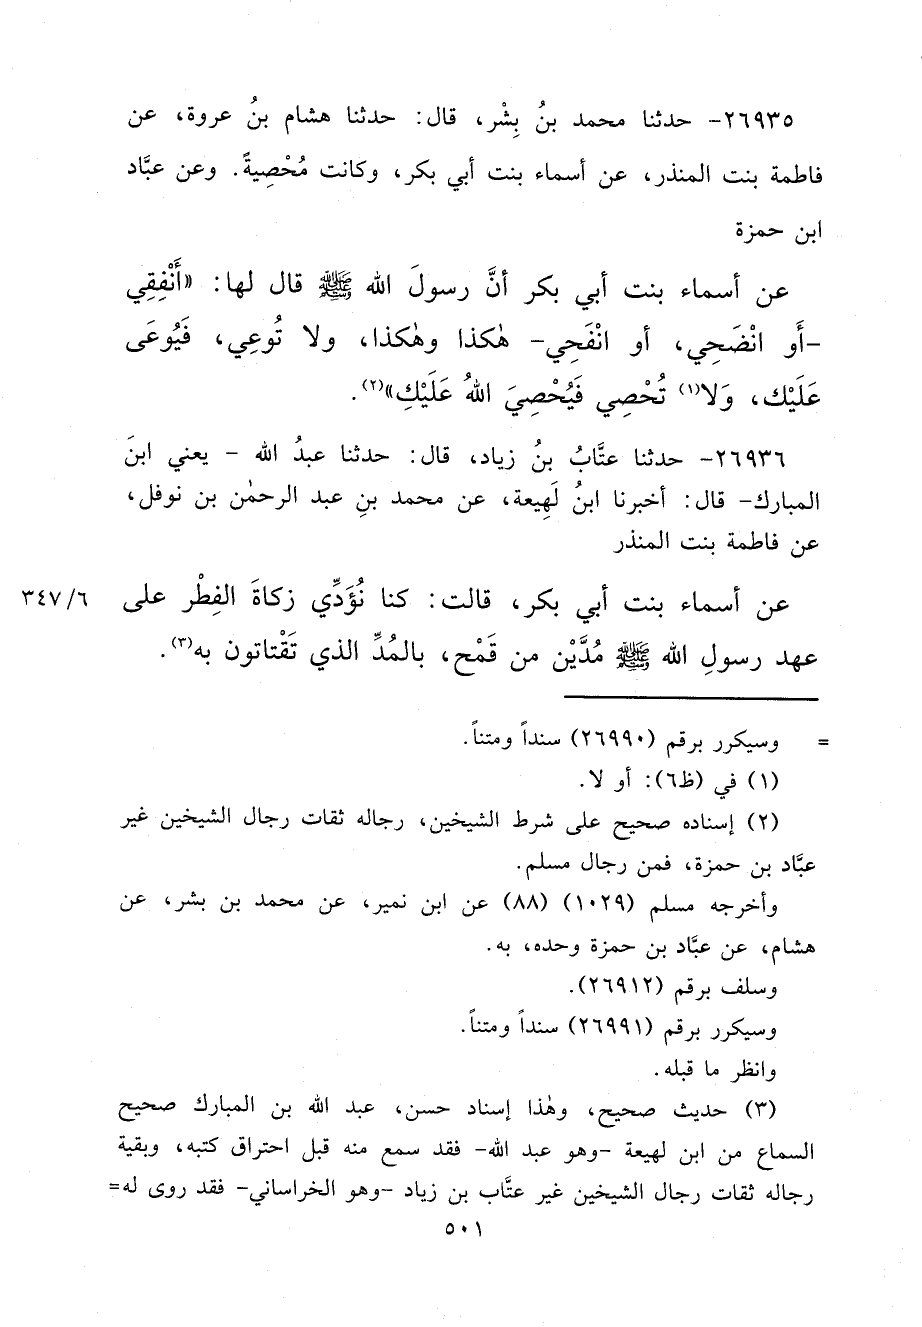 ٢٦٩٣٥- حدثنا محمد بنُ بِشْر، قال: حدثنا هشام بنُ عروة، عن
فاطمة بنت المنذر، عن أسماء بنت أبي بكر، وكانت مُحْصِيةً. وعن عبَّاد
ابن حمزة
عن أسماء بنت أبي بكر أنَّ رسولَ الله ﷺ قال لها: «أَنْفِقِي
-أَو انْضَحِي، أو انْفَحِي- هٰكذا وهٰكذا، ولا تُوعِي، فَيُوعَى
عَلَيْك، وَلا(١) تُحْصِي فَيُحْصِيَ اللهُ عَلَيْكِ»(٢).
٢٦٩٣٦- حدثنا عتَّابُ بنُ زياد، قال: حدثنا عبدُ الله - يعني ابنَ
المبارك- قال: أخبرنا ابنُ لَهِيعة، عن محمد بنِ عبد الرحمٰن بن نوفل،
عن فاطمة بنت المنذر
عن أسماء بنت أبي بكر، قالت: كنا نُؤَدِّي زكاةَ الفِطْر على ٣٤٧/٦
عهد رسولِ الله ﷺ مُدَّيْن من قَمْح، بالمُدِّ الذي تَقْتاتون به(٣).
= وسيكرر برقم (٢٦٩٩٠) سنداً ومتناً.
(١) في (ظ٦): أو لا.
(٢) إسناده صحيح على شرط الشيخين، رجاله ثقات رجال الشيخين غير
عبَّاد بن حمزة، فمن رجال مسلم.
وأخرجه مسلم (١٠٢٩) (٨٨) عن ابن نمير، عن محمد بن بشر، عن
هشام، عن عبَّاد بن حمزة وحده، به.
وسلف برقم (٢٦٩١٢).
وسيكرر برقم (٢٦٩٩١) سنداً ومتناً.
وانظر ما قبله.
(٣) حديث صحيح، وهٰذا إسناد حسن، عبد الله بن المبارك صحيح
السماع من ابن لهيعة -وهو عبد الله- فقد سمع منه قبل احتراق كتبه، وبقية
رجاله ثقات رجال الشيخين غير عتَّاب بن زياد -وهو الخراساني- فقد روى له=
٥٠١